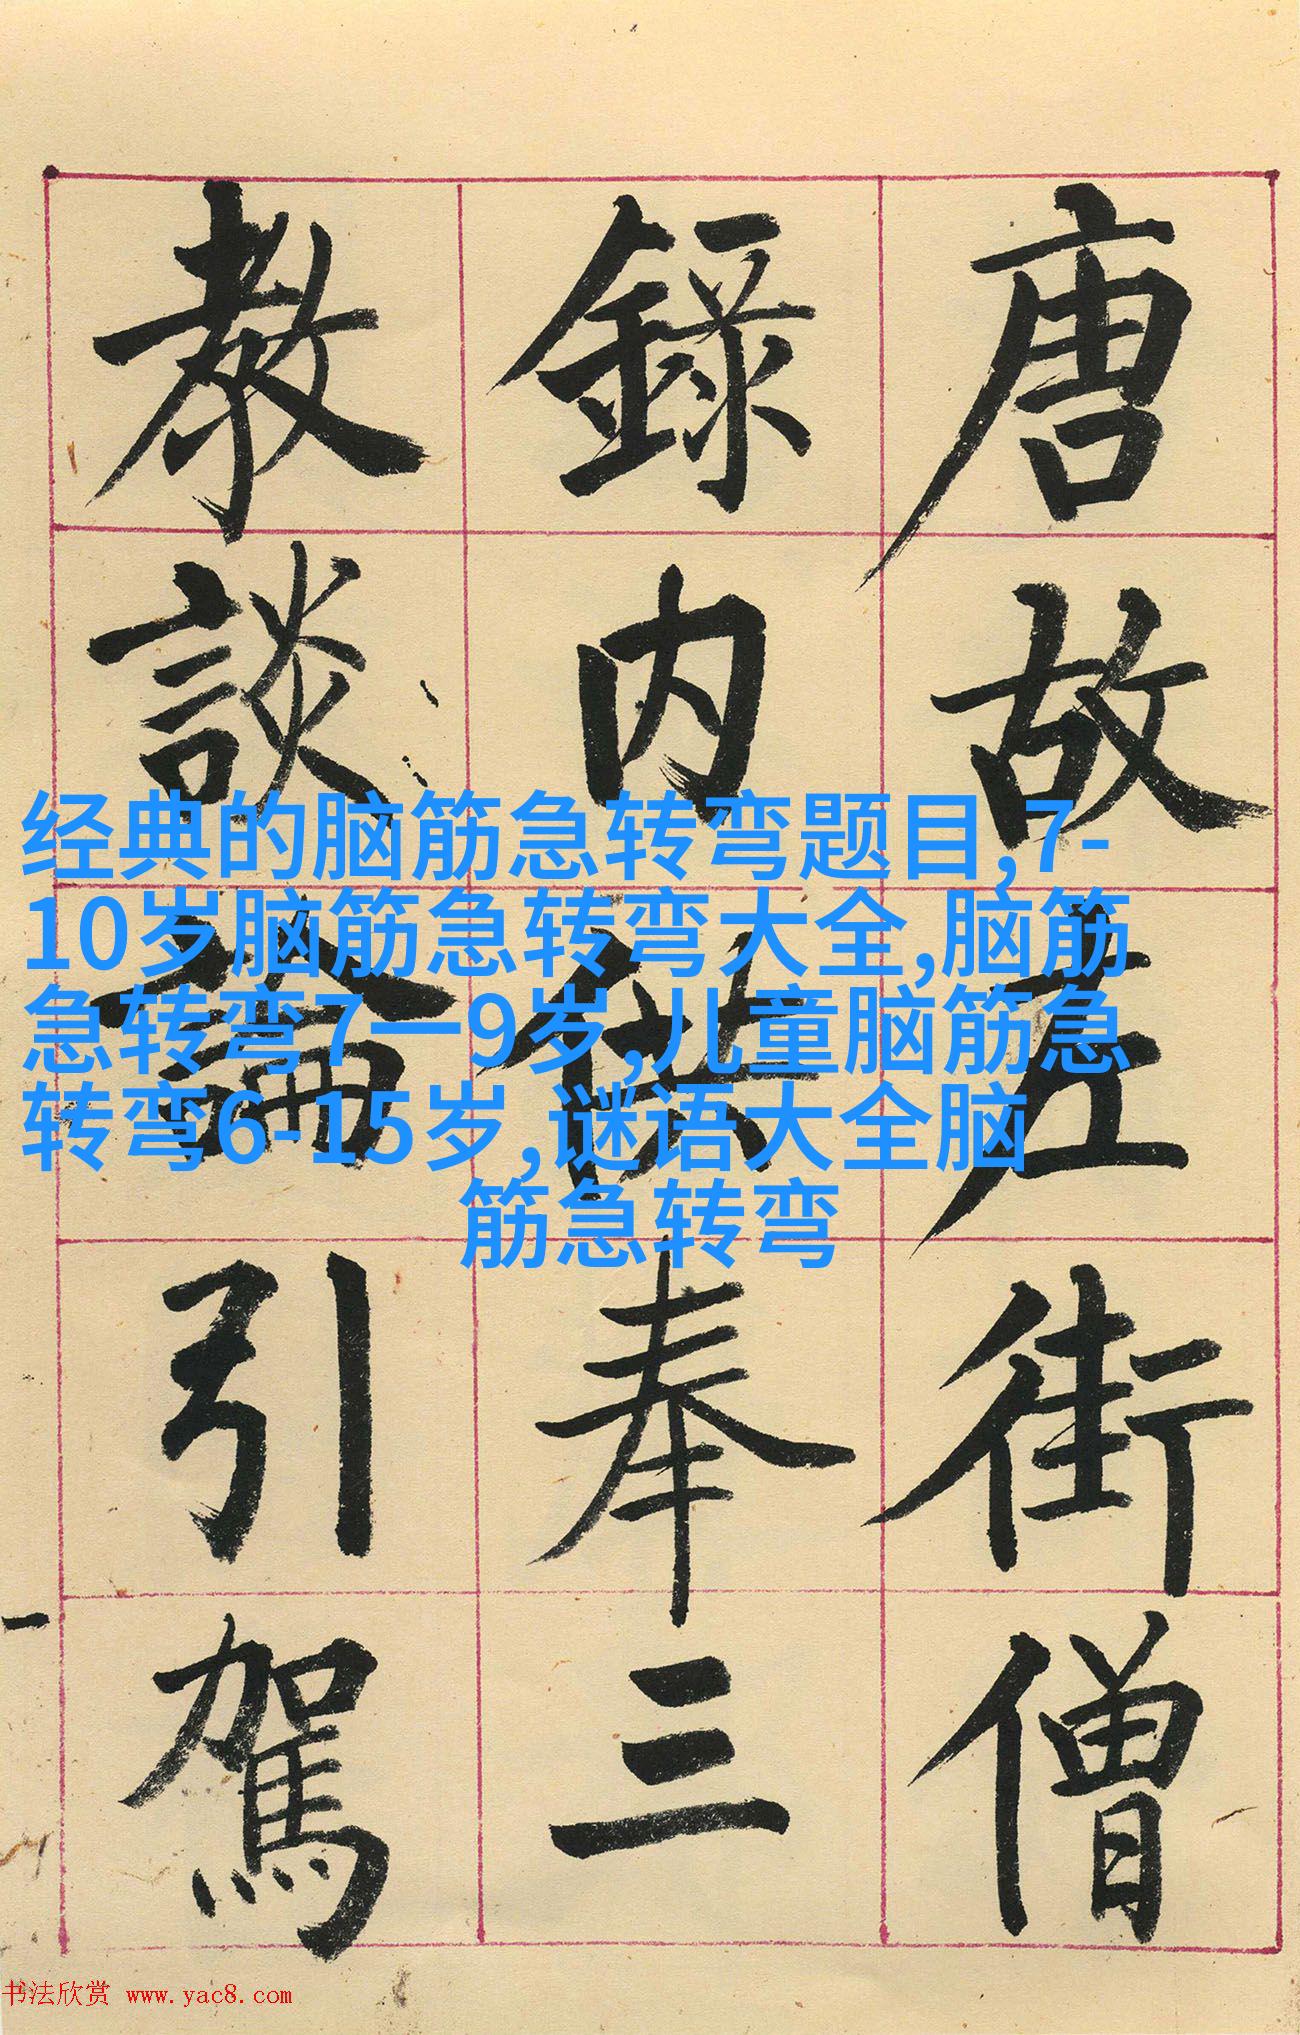 唐故左街僧
錄内供奉三
教談論引駕
经典的脑筋急转弯题目,7-
10岁脑筋急转弯大全,脑筋
急转弯7一9岁,儿童脑筋急
转弯6-15岁,谜语大全脑
筋急转弯
书法欣赏 www.yac8.com